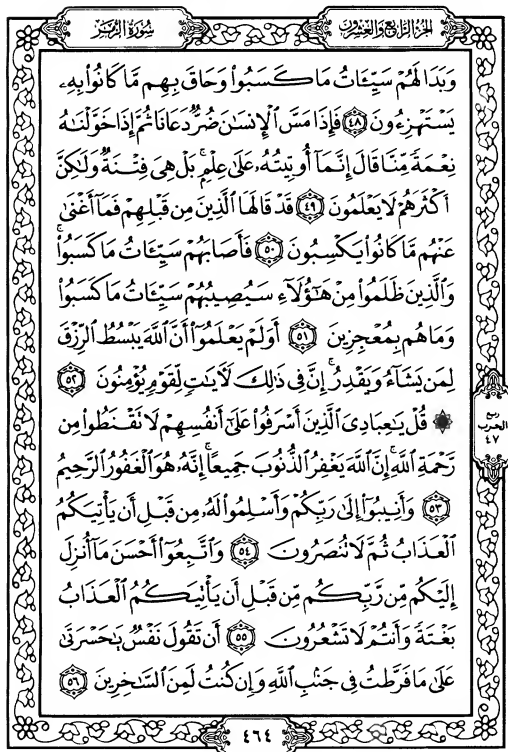 الجزء الرابع والعشرون
سورة الزمر
وَبَدَا لَهُمْ سَيِّـَٔاتُ مَا كَسَبُوا۟ وَحَاقَ بِهِم مَّا كَانُوا۟ بِهِۦ
يَسْتَهْزِءُونَ ﴿٤٨﴾ فَإِذَا مَسَّ ٱلْإِنسَـٰنَ ضُرٌّ دَعَانَا ثُمَّ إِذَا خَوَّلْنَـٰهُ
نِعْمَةً مِّنَّا قَالَ إِنَّمَآ أُوتِيتُهُۥ عَلَىٰ عِلْمٍۭ ۚ بَلْ هِىَ فِتْنَةٌ وَلَـٰكِنَّ
أَكْثَرَهُمْ لَا يَعْلَمُونَ ﴿٤٩﴾ قَدْ قَالَهَا ٱلَّذِينَ مِن قَبْلِهِمْ فَمَآ أَغْنَىٰ
عَنْهُم مَّا كَانُوا۟ يَكْسِبُونَ ﴿٥٠﴾ فَأَصَابَهُمْ سَيِّـَٔاتُ مَا كَسَبُوا۟ ۚ
وَٱلَّذِينَ ظَلَمُوا۟ مِنْ هَـٰٓؤُلَآءِ سَيُصِيبُهُمْ سَيِّـَٔاتُ مَا كَسَبُوا۟
وَمَا هُم بِمُعْجِزِينَ ﴿٥١﴾ أَوَلَمْ يَعْلَمُوٓا۟ أَنَّ ٱللَّهَ يَبْسُطُ ٱلرِّزْقَ
لِمَن يَشَآءُ وَيَقْدِرُ ۚ إِنَّ فِى ذَٰلِكَ لَـَٔايَـٰتٍ لِّقَوْمٍ يُؤْمِنُونَ ﴿٥٢﴾
۞ قُلْ يَـٰعِبَادِىَ ٱلَّذِينَ أَسْرَفُوا۟ عَلَىٰٓ أَنفُسِهِمْ لَا تَقْنَطُوا۟ مِن
رَّحْمَةِ ٱللَّهِ ۚ إِنَّ ٱللَّهَ يَغْفِرُ ٱلذُّنُوبَ جَمِيعًا ۚ إِنَّهُۥ هُوَ ٱلْغَفُورُ ٱلرَّحِيمُ
﴿٥٣﴾ وَأَنِيبُوٓا۟ إِلَىٰ رَبِّكُمْ وَأَسْلِمُوا۟ لَهُۥ مِن قَبْلِ أَن يَأْتِيَكُمُ
ٱلْعَذَابُ ثُمَّ لَا تُنصَرُونَ ﴿٥٤﴾ وَٱتَّبِعُوٓا۟ أَحْسَنَ مَآ أُنزِلَ
إِلَيْكُم مِّن رَّبِّكُم مِّن قَبْلِ أَن يَأْتِيَكُمُ ٱلْعَذَابُ
بَغْتَةً وَأَنتُمْ لَا تَشْعُرُونَ ﴿٥٥﴾ أَن تَقُولَ نَفْسٌ يَـٰحَسْرَتَىٰ
عَلَىٰ مَا فَرَّطتُ فِى جَنۢبِ ٱللَّهِ وَإِن كُنتُ لَمِنَ ٱلسَّـٰخِرِينَ ﴿٥٦﴾
ربع
الحزب
٤٧
٤٦٤